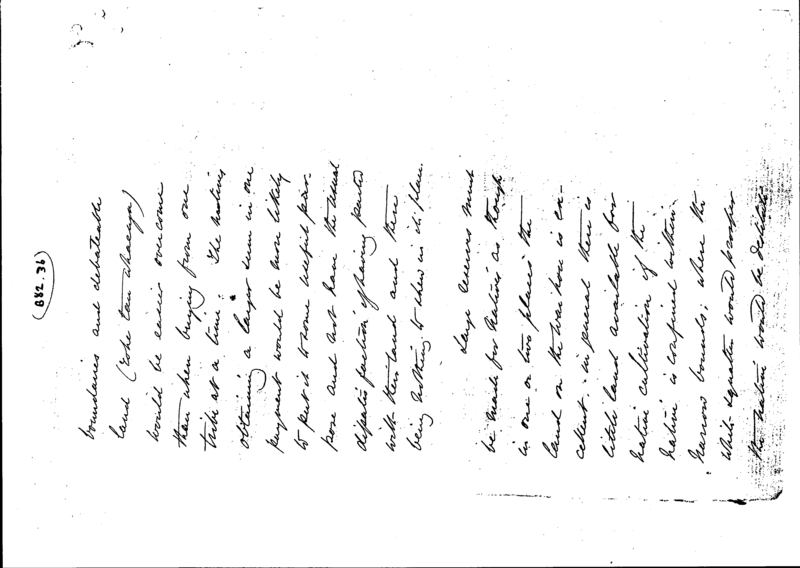 B82.36
boundaries and debateable
land (Kohe tau whenga)
would be easier overcome
than when buying from one
tribe at a time. The natives
obtaining a larger sum in one
payment would be more likely
to put it to some useful pur-
pose and not have the usual
dissatisfaction of having parted
with their land and there
being nothing to shew in its place.
Large reserves must
be made for natives as though
in one or two places the
land on the is ex-
cellent, in general there is
little land available for
native cultivation if the
native is confined within
narrow bounds; where the
white squatter would prosper
the native would be destitute